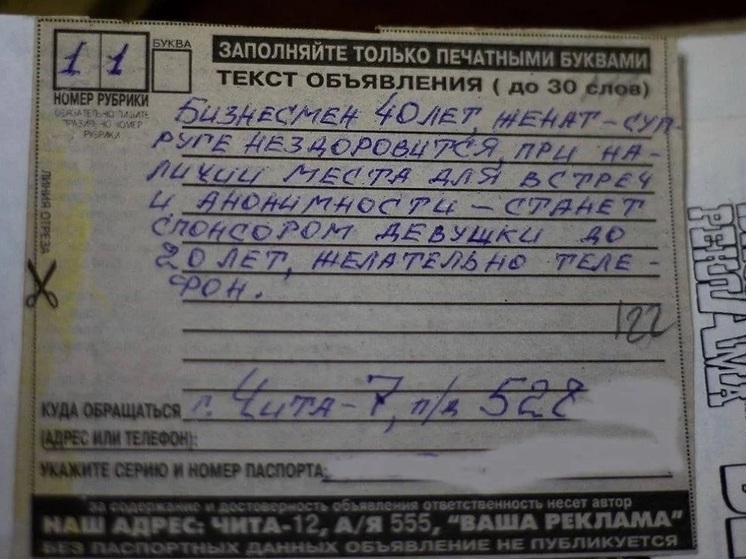 11
БУКВА
ЗАПОЛНЯЙТЕ ТОЛЬКО ПЕЧАТНЫМИ БУКВАМИ
ТЕКСТ ОБЪЯВЛЕНИЯ ( до 30 слов)
НОМЕР РУБРИКИ
ОБЯЗАТЕЛЬНО ПИШИТЕ
НОМЕР
РУБРИКИ
БИЗНЕСМЕН 40 ЛЕТ, ЖЕНАТ – СУП-
РУГЕ НЕЗДОРОВИТСЯ, ПРИ НА-
ЛИЧИИ МЕСТА ДЛЯ ВСТРЕЧ
И АНОНИМНОСТИ – СТАНЕТ
СПОНСОРОМ ДЕВУШКИ ДО
20 ЛЕТ, ЖЕЛАТЕЛЬНО ТЕЛЕ-
ФОН.
ЛИНИЯ ОТРЕЗА
122
КУДА ОБРАЩАТЬСЯ г. Чита-7, п/д 528
(АДРЕС ИЛИ ТЕЛЕФОН):
УКАЖИТЕ СЕРИЮ И НОМЕР ПАСПОРТА:
за содержание и достоверность объявления ответственность несет автор
НАШ АДРЕС: ЧИТА-12, А/Я 555, "ВАША РЕКЛАМА"
БЕЗ ПАСПОРТНЫХ ДАННЫХ ОБЪЯВЛЕНИЕ НЕ ПУБЛИКУЕТСЯ